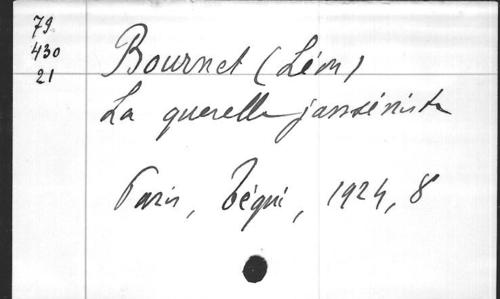 79
430
21
Bournet (Léon)
La querelle janséniste
Paris, Téqui, 1924, 8